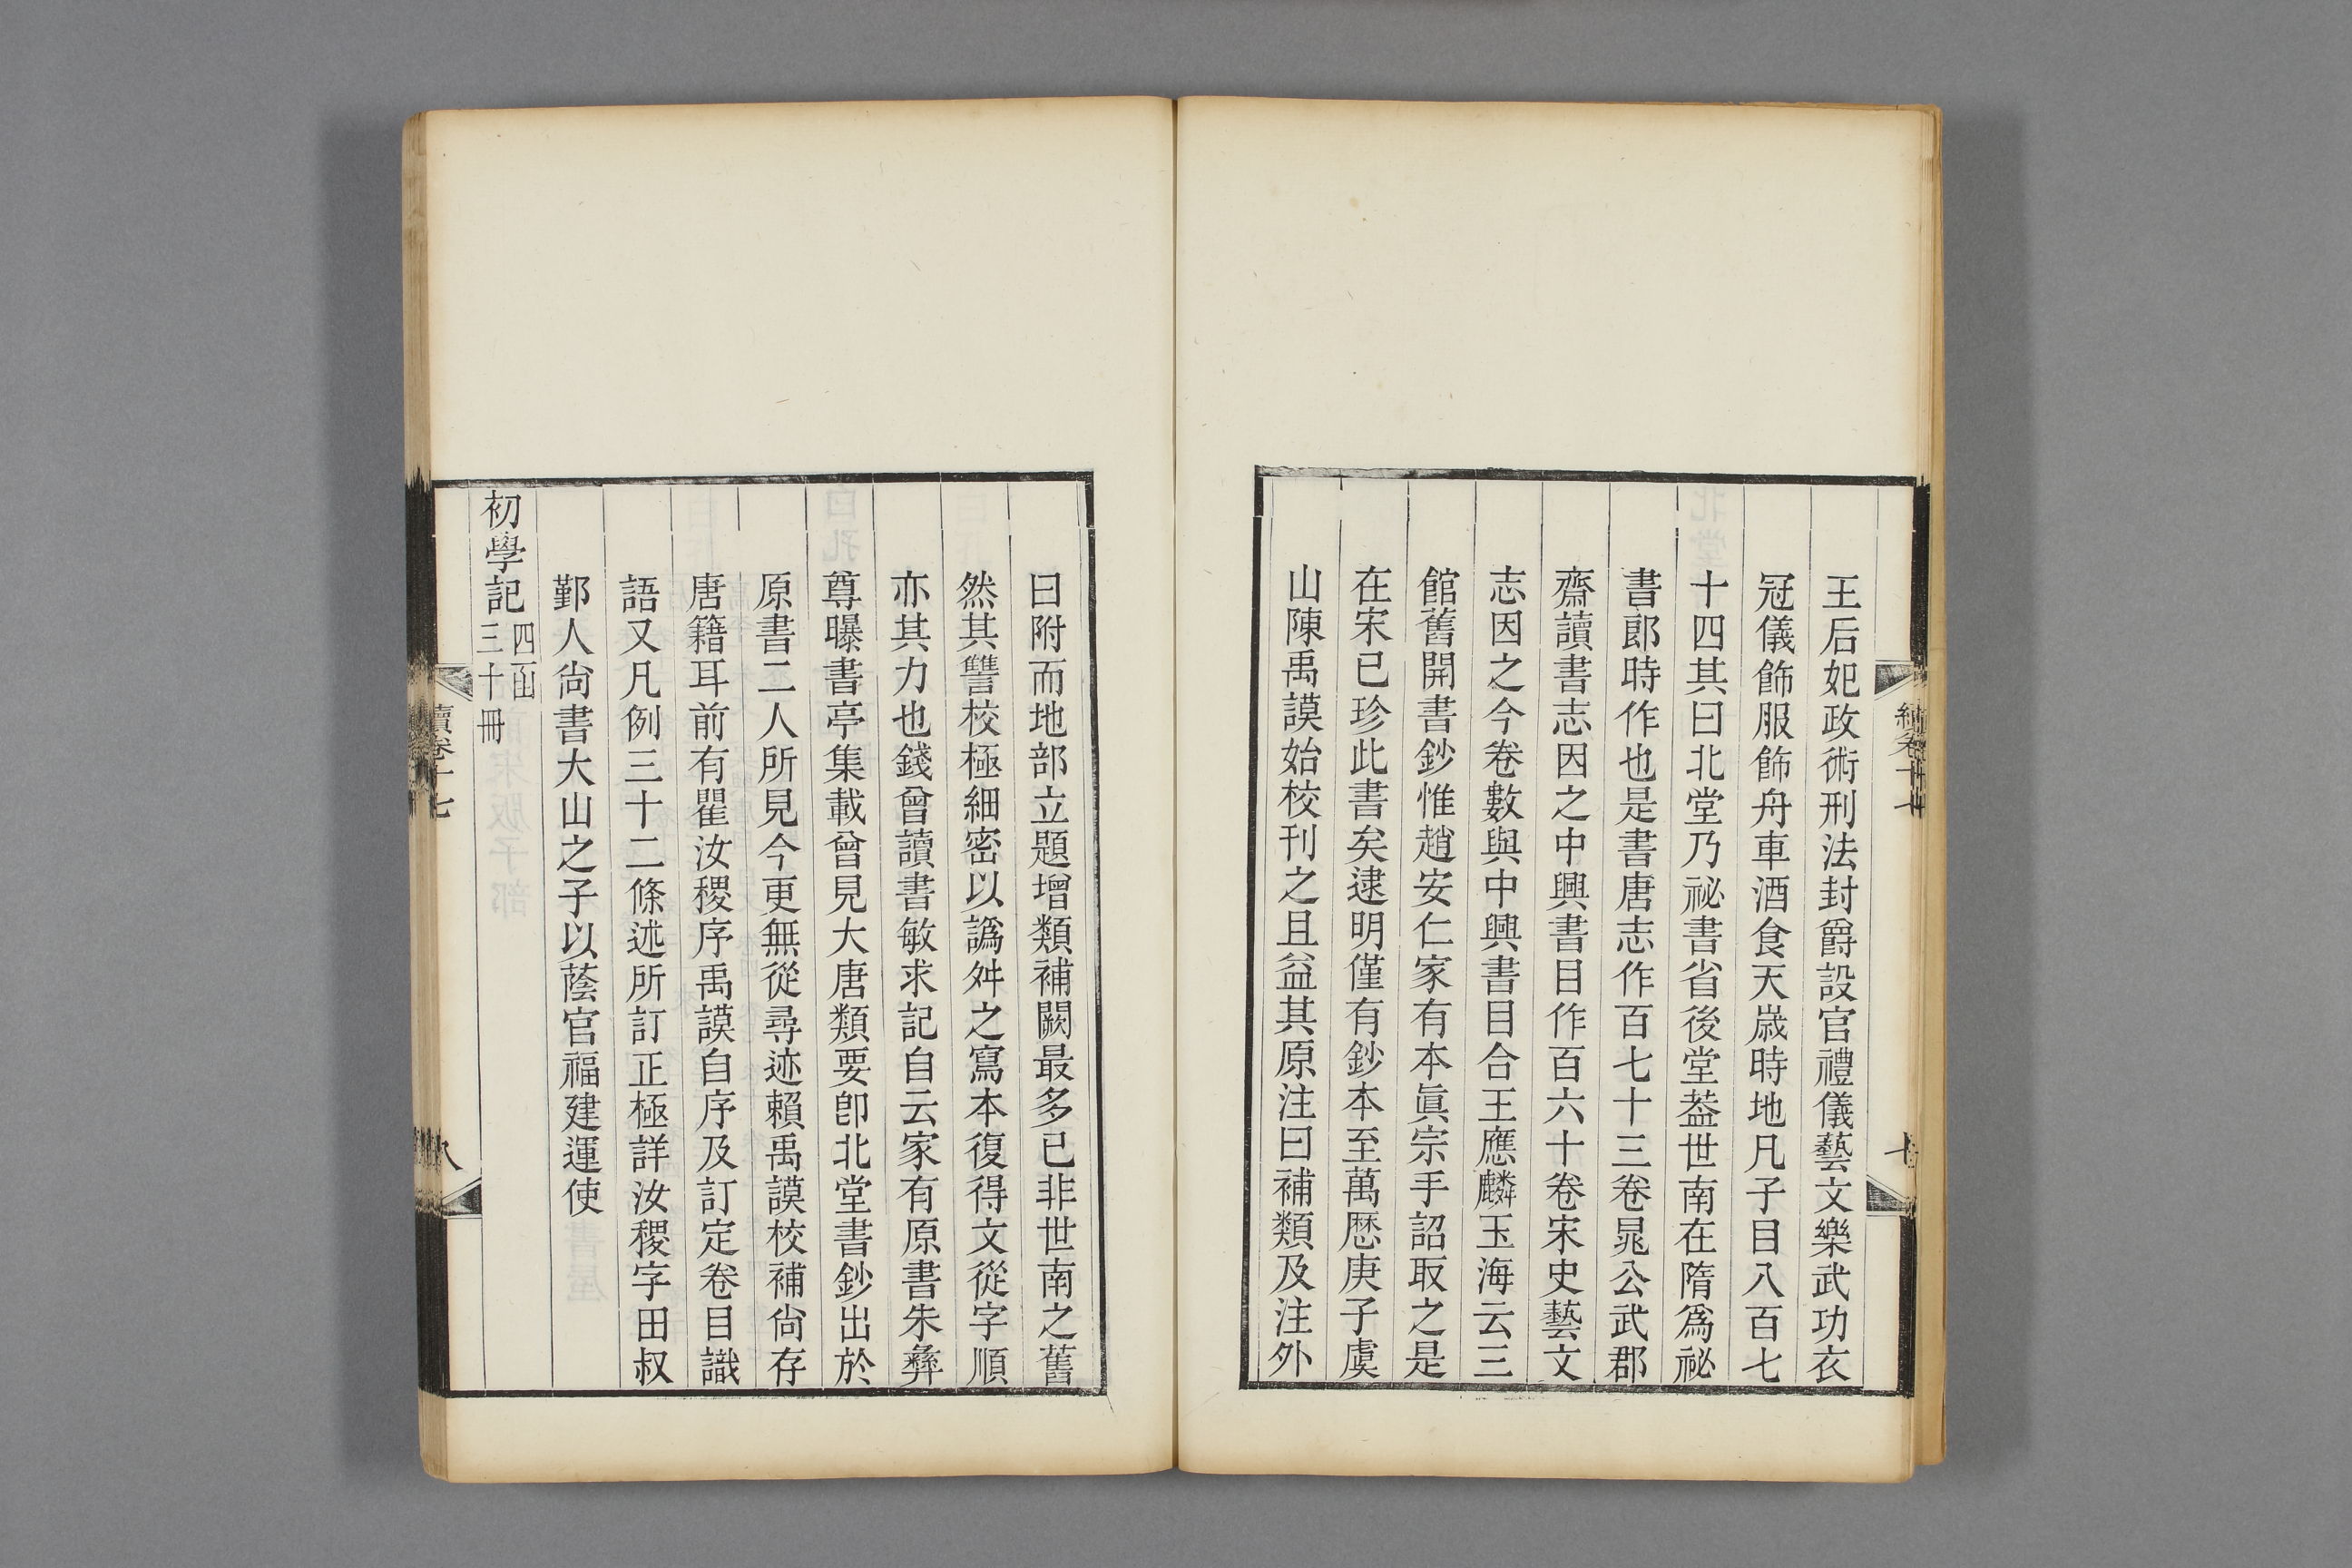 王后妃政術刑法封爵設官禮儀藝文樂武功衣
冠儀飾服飾舟車酒食天歲時地凡子目八百七
十四其曰北堂乃祕書省後堂葢世南在隋爲祕
書郎時作也是書唐志作百七十三卷晁公武郡
齋讀書志因之中興書目作百六十卷宋史藝文
志因之今卷數與中興書目合王應麟玉海云三
館舊開書鈔惟趙安仁家有本眞宗手詔取之是
在宋已珍此書矣逮明僅有鈔本至萬厯庚子虞
山陳禹謨始校刊之且益其原注曰補類及注外
續卷十七
七
曰附而地部立題增類補闕最多已非世南之舊
然其讐校極細密以譌舛之寫本復得文從字順
亦其力也錢曾讀書敏求記自云家有原書朱彝
尊曝書亭集載曾見大唐類要卽北堂書鈔出於
原書二人所見今更無從尋迹賴禹謨校補尙存
唐籍耳前有瞿汝稷序禹謨自序及訂定卷目識
語又凡例三十二條述所訂正極詳汝稷字田叔
鄞人尙書大山之子以蔭官福建運使
初學記四函三十冊
續卷十七
八